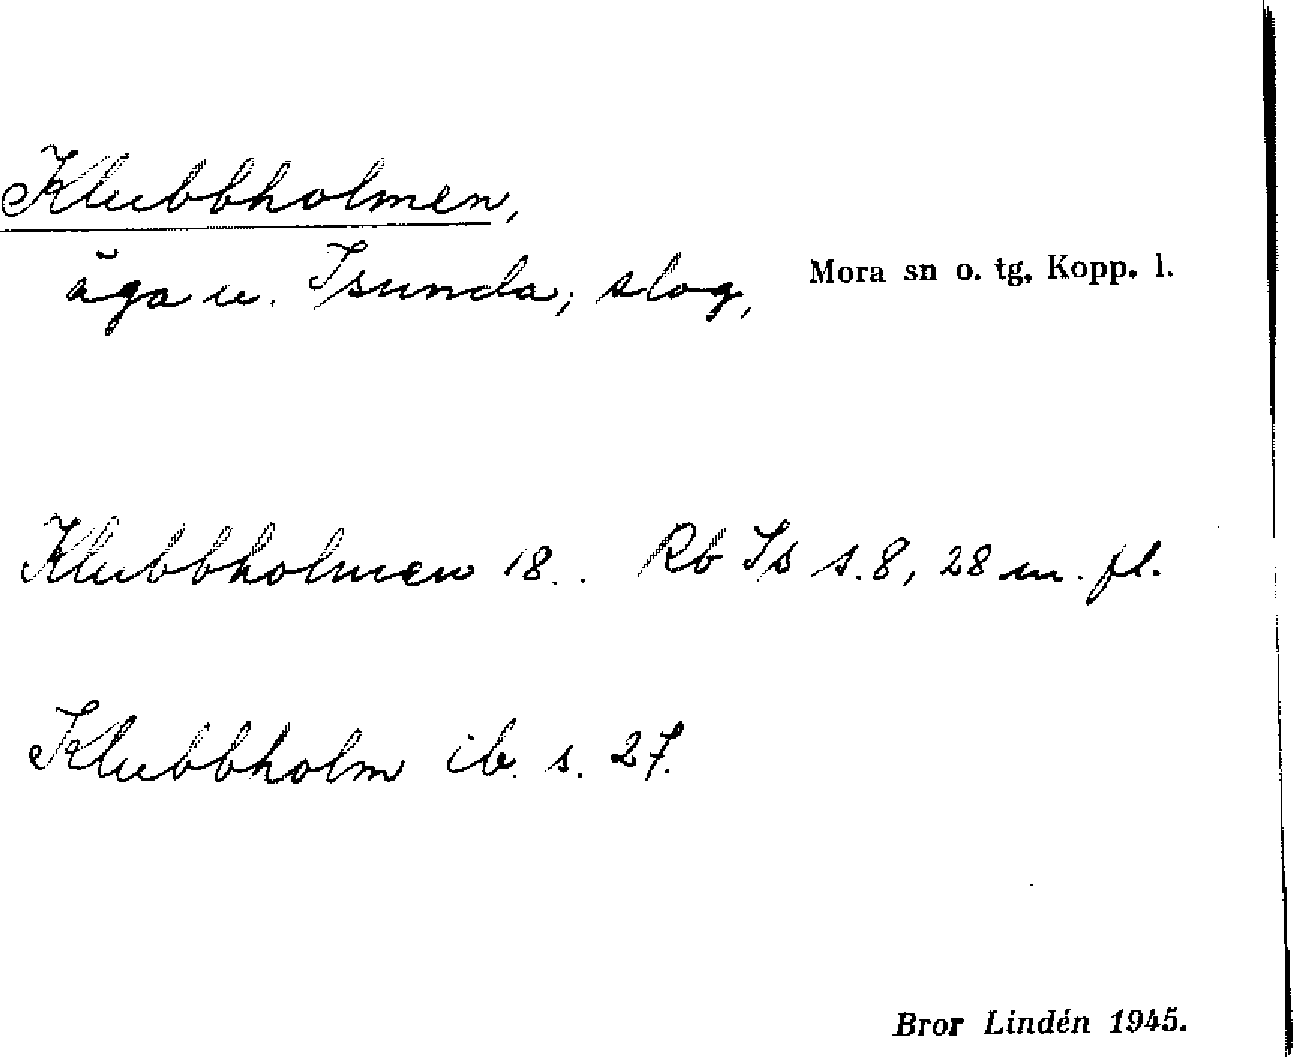 Klubbholmen,
äga u. Isunda; slog,
Mora sn o. tg, Kopp. l.
Klubbholmen 18.. Rb Is s. 8, 28 m. fl.
Klubbholm ib. s. 27.
Bror Lindén 1945.